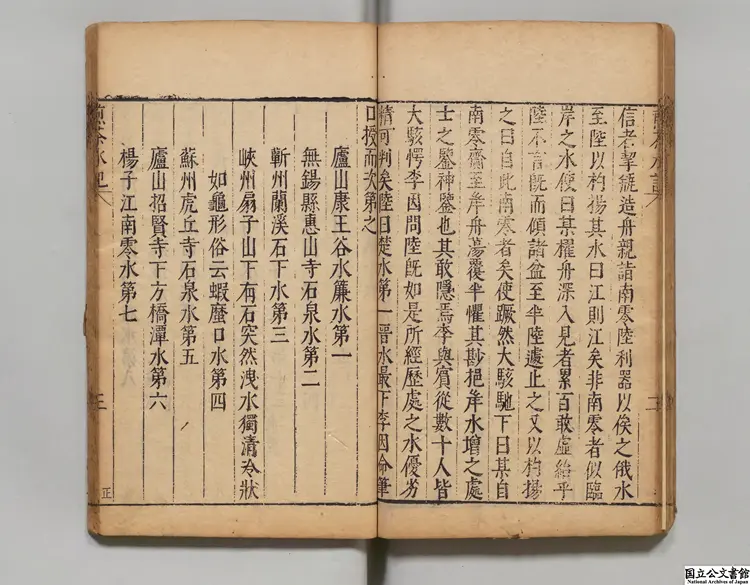 信者挈缾造舟親詣南零陸利器以俟之俄水
至陸以杓揚其水曰江則江矣非南零者似臨
岸之水使曰某櫂舟深入見者累百敢虛紿乎
陸不言既而傾諸盆至半陸遽止之又以杓揚
之曰自此南零者矣使蹶然大駭馳下曰某自
南零齎至岸舟蕩覆半懼其尠挹岸水增之處
士之鑒神鑒也其敢隱焉李與賓從數十人皆
大駭愕李因問陸既如是所經歷處之水優劣
精可判矣陸曰楚水第一晉水最下李因命筆
口授而次第之
廬山康王谷水簾水第一
無錫縣惠山寺石泉水第二
蘄州蘭溪石下水第三
峽州扇子山下有石突然洩水獨清冷狀
如龜形俗云蝦蟆口水第四
蘇州虎丘寺石泉水第五
廬山招賢寺下方橋潭水第六
楊子江南零水第七
煎茶水記
三
正
国立公文書館
National Archives of Japan